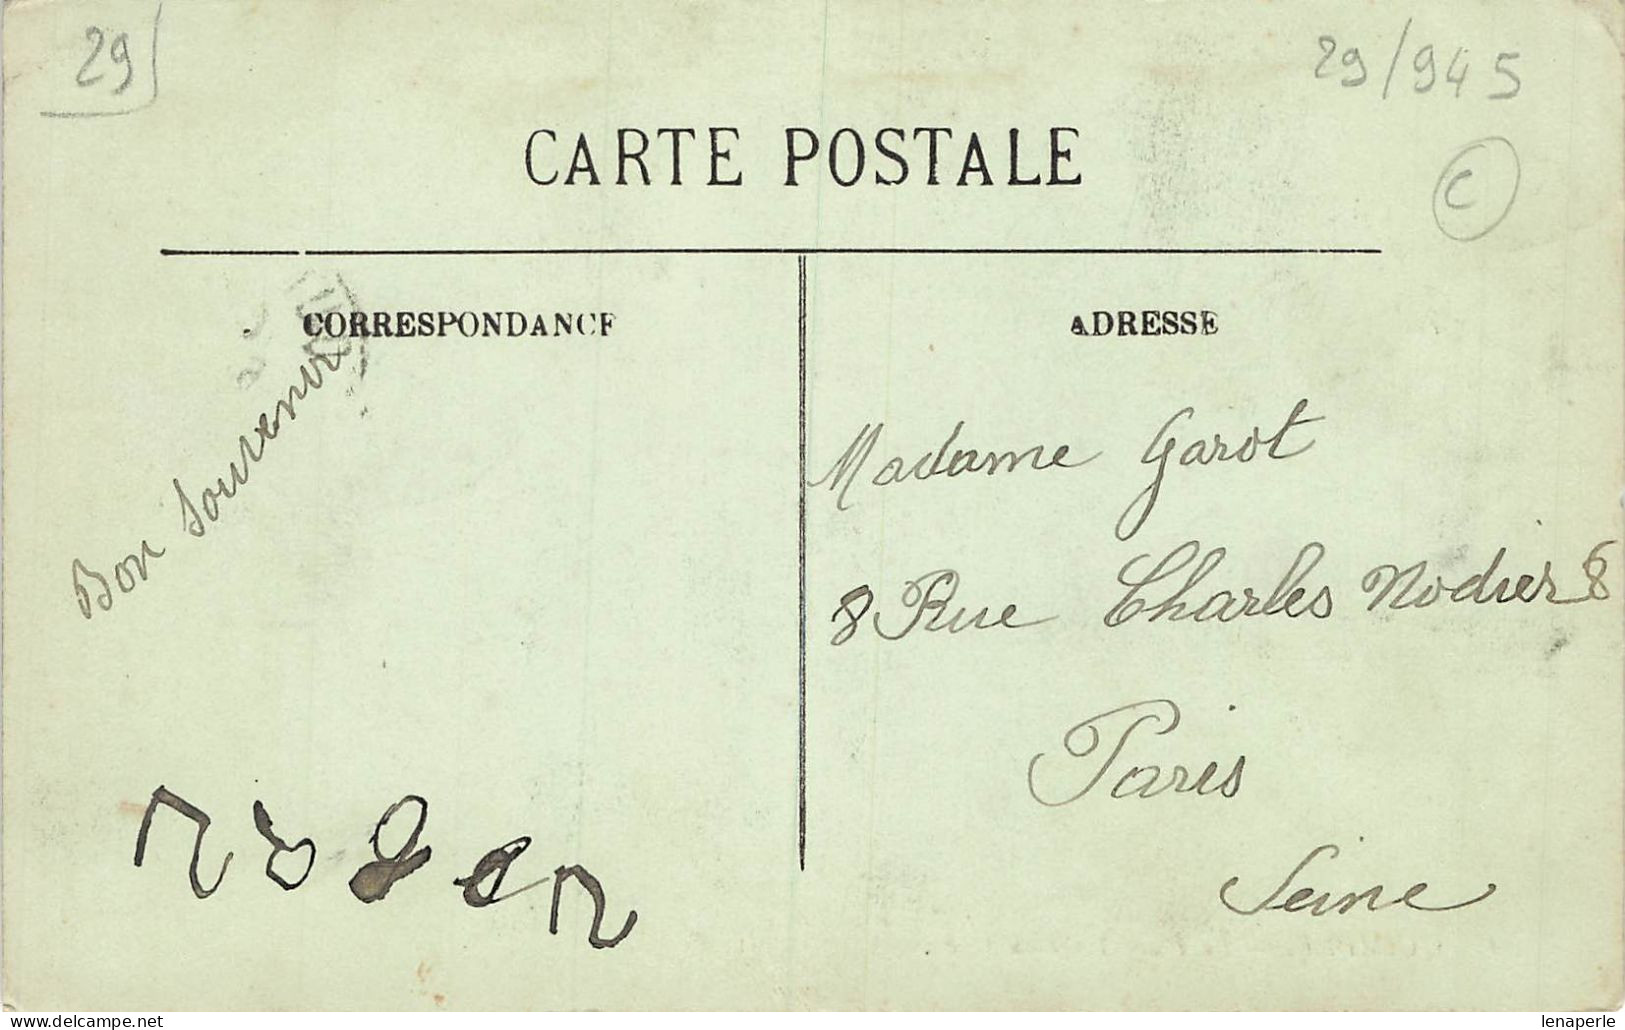 29
29/945
CARTE POSTALE
C
CORRESPONDANCE
ADRESSE
Bon Souvenir
Madame Garot
8 Rue Charles Nodier 8
Paris
Seine
delcampe.net
lenaperle